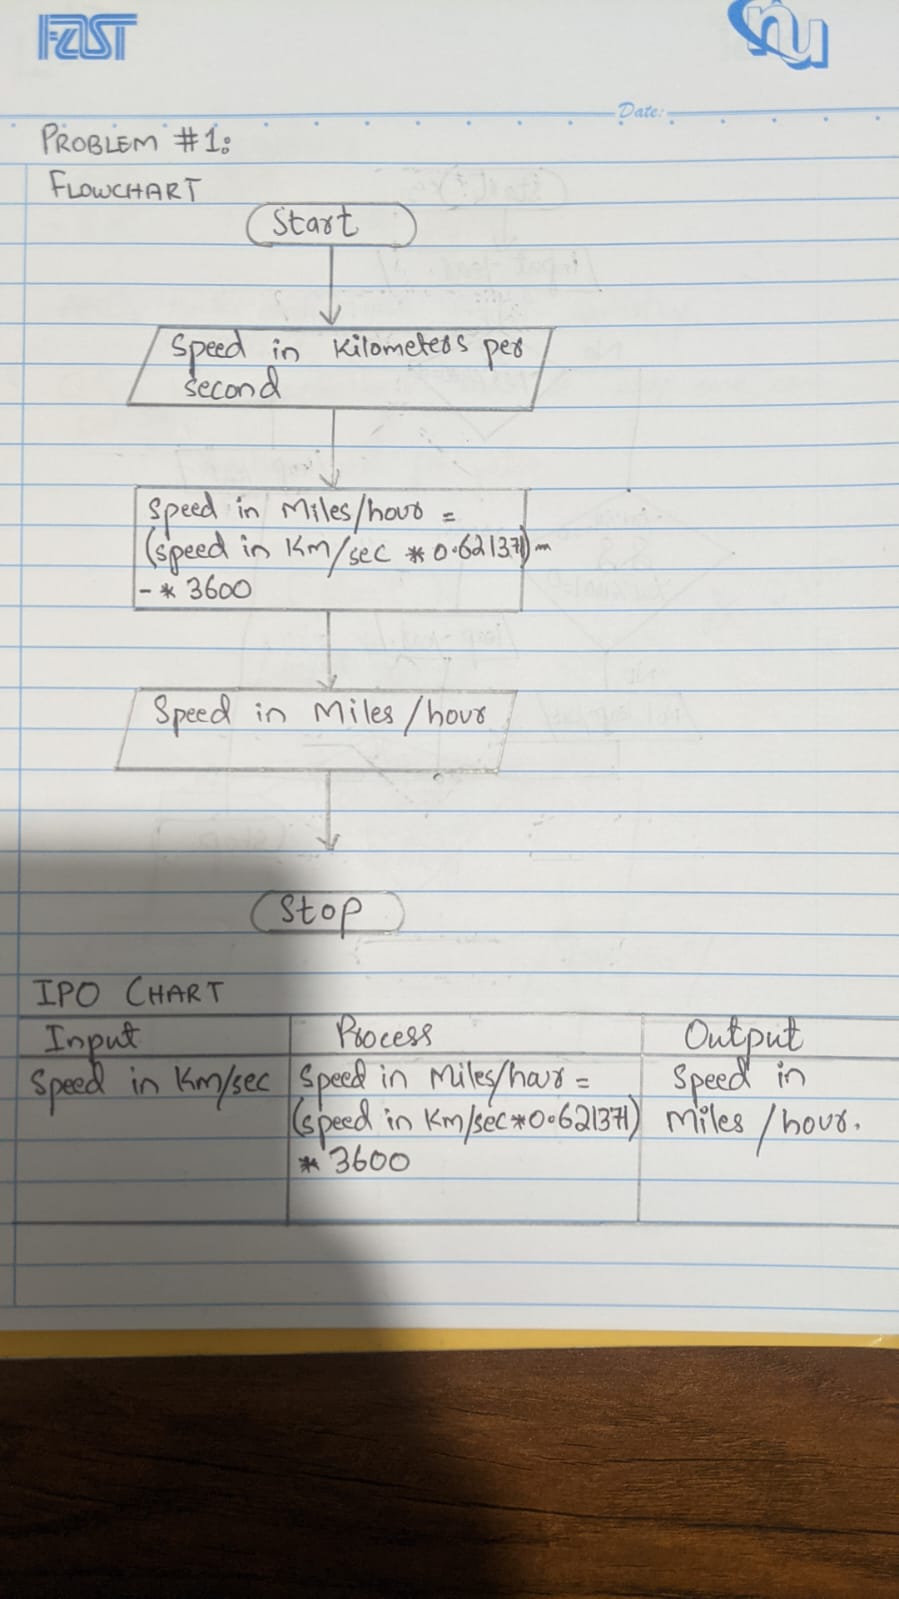 FAST
nu
Date:
PROBLEM #1:
FLOWCHART
Start
Speed in Kilometers per
second
Speed in Miles/hour =
(speed in Km/sec * 0.621371)
- * 3600
Speed in Miles/hour
Stop
IPO CHART
Input Process Output
Speed in Km/sec Speed in Miles/hour = Speed in
(speed in Km/sec*0.621371) Miles/hour.
* 3600